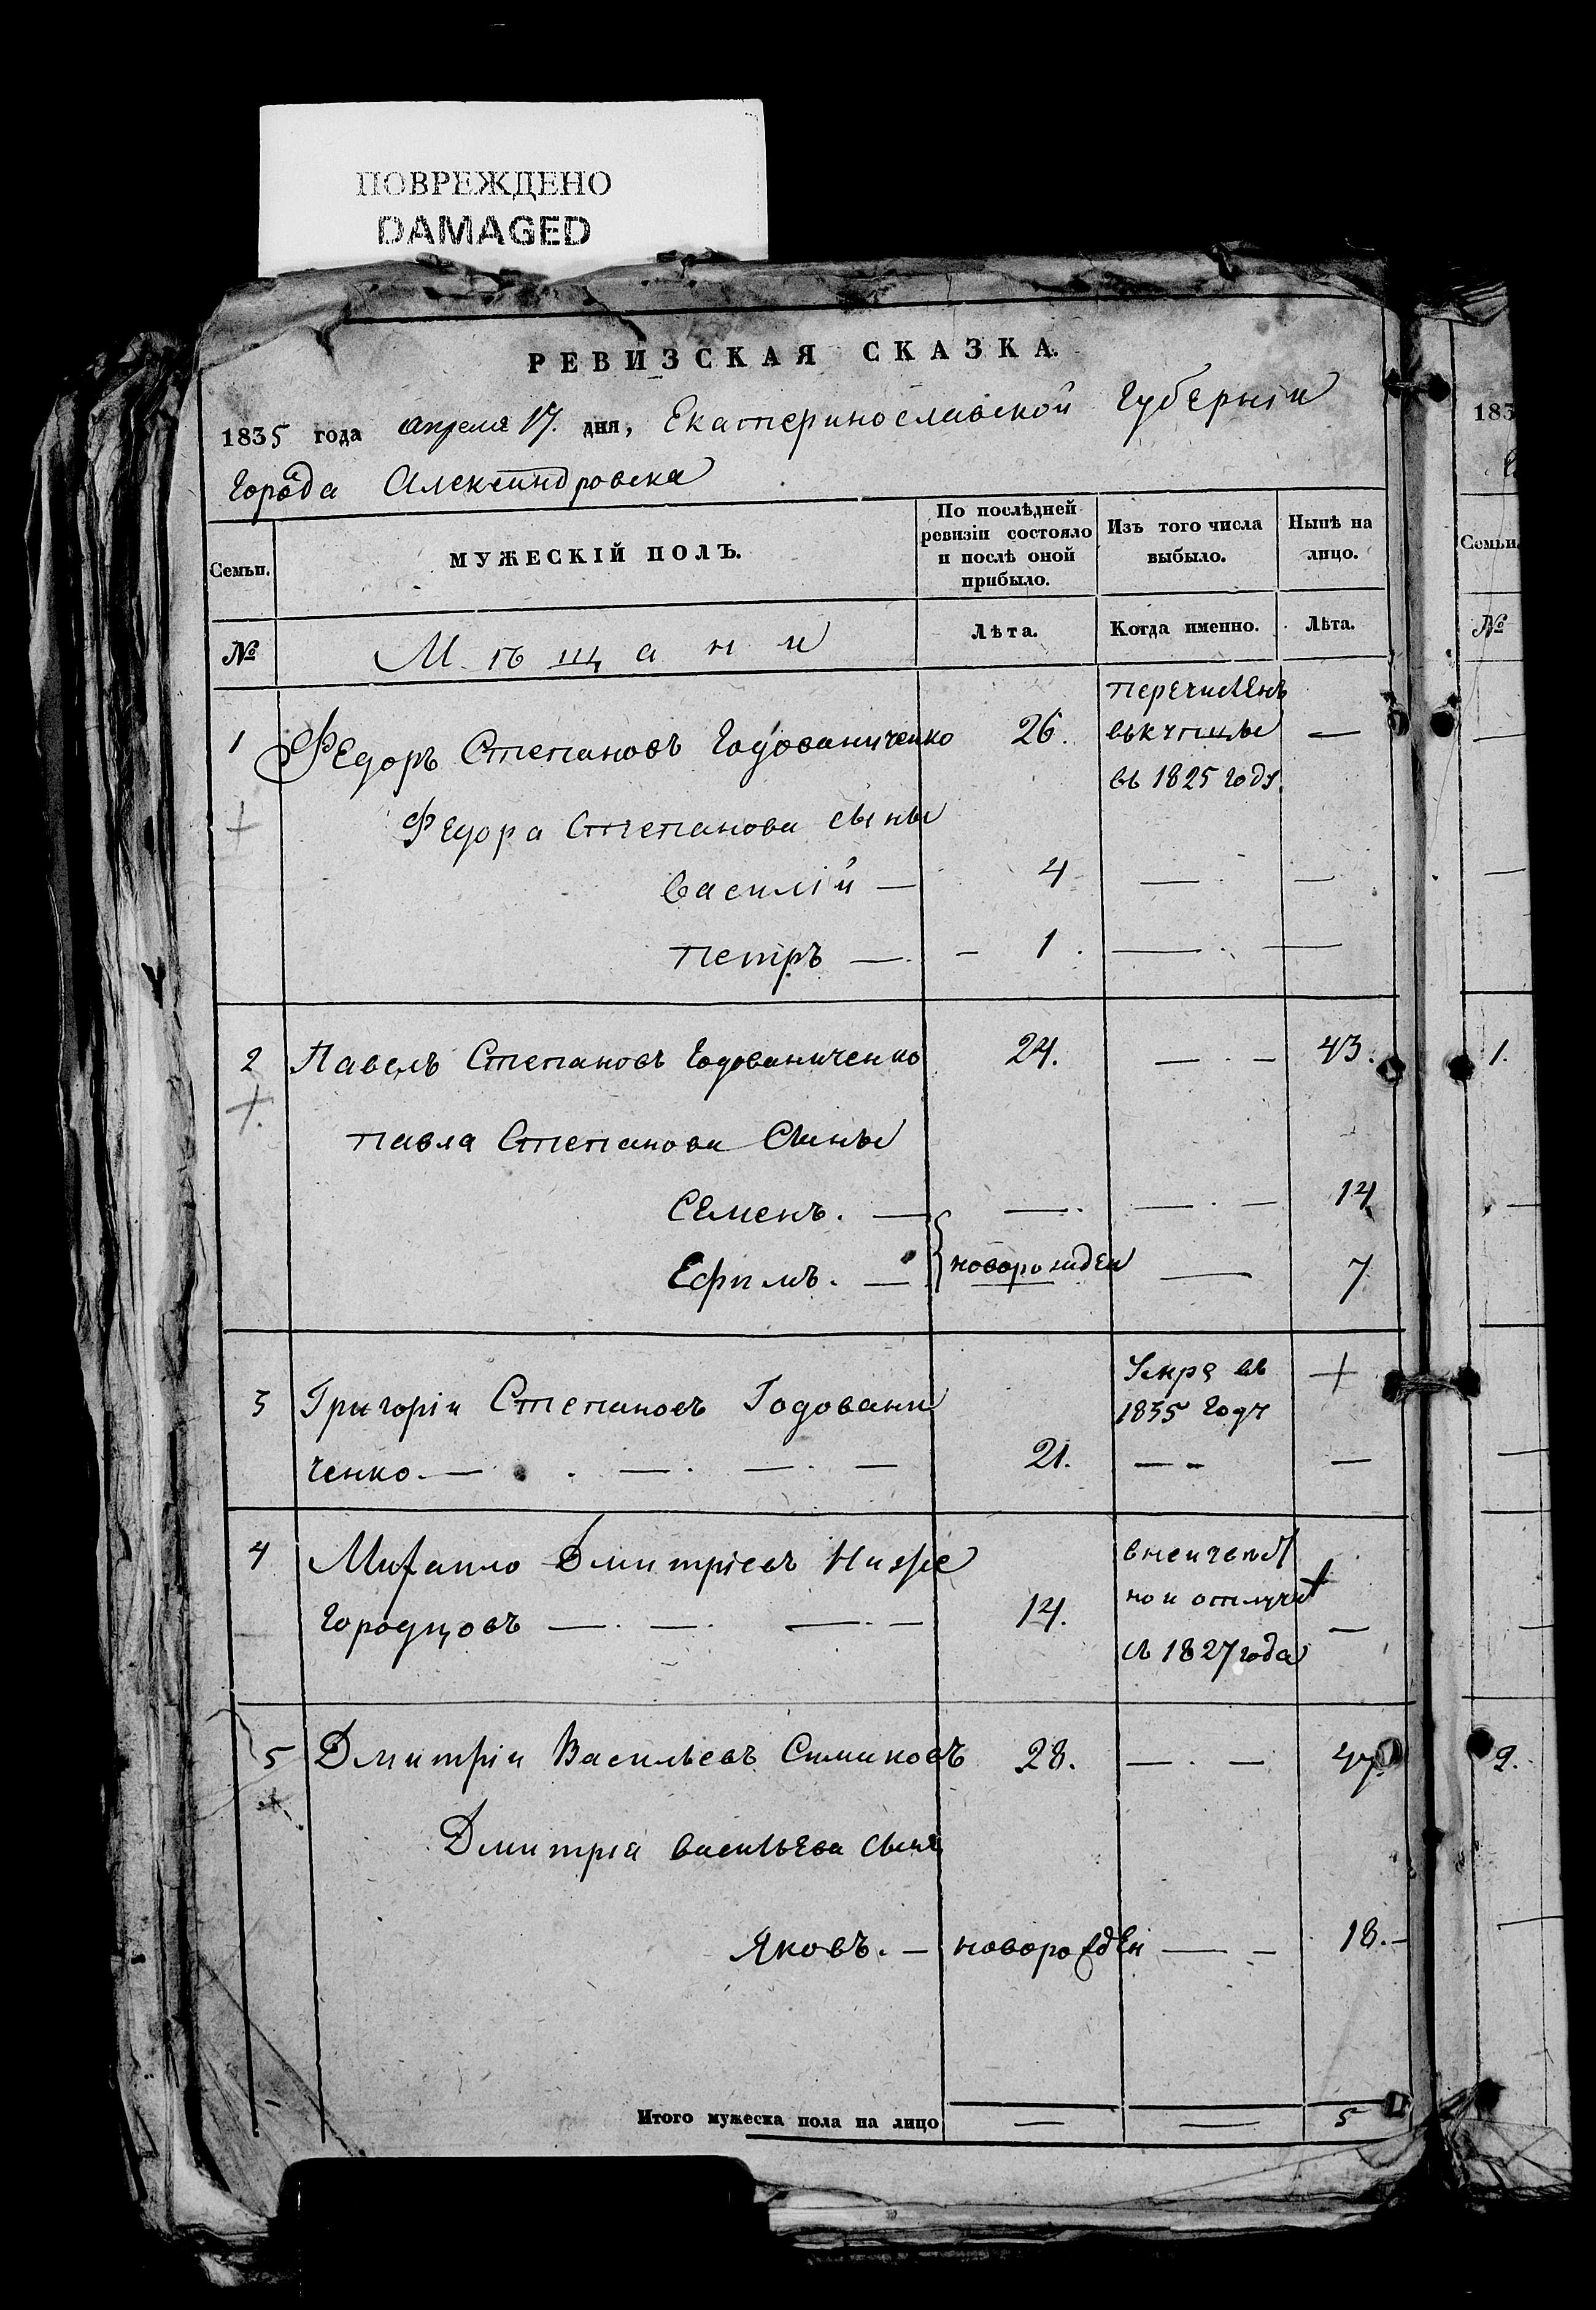 ПОВРЕЖДЕНО
DAMAGED
РЕВИЗСКАЯ СКАЗКА.
1835 года апреля 17. дня, Екатеринославской Губерніи
города Александровска
Семьи.
МУЖЕСКІЙ ПОЛЪ.
По послѣдней ревизіи состояло и послѣ оной прибыло.
Изъ того числа выбыло.
Нынѣ на лицо.
№
Мѣщани
Лѣта.
Когда именно.
Лѣта.
перечисленъ
1 Федоръ Степановъ Годованиченко 26. вькупцы —
въ 1825 году.
Федора Степанова сыны
Василій — 4 — —
Петръ — - 1. — —
2 Павелъ Степановъ Годованиченко 24. — . — 43.
Павла Степанова Сыны
Семенъ. — — . — . — 14
Ефимъ. — новорождены — 7
Умре въ +
3 Григоріи Степановъ Годовани 1835 году
ченко. — . . — . — . — 21. — - —
4 Михаило Дмитріевъ Ниже
городцовъ — . — . — . — 14. —
съ 1827 года
5 Дмитріи Васильевъ Симиковъ 28. — . — 47.
Дмитрія васильева сынъ
Яковъ. — новорожден — - 18. -
Итого мужеска пола на лицо — — 5
183
Семьи.
№
1.
2.